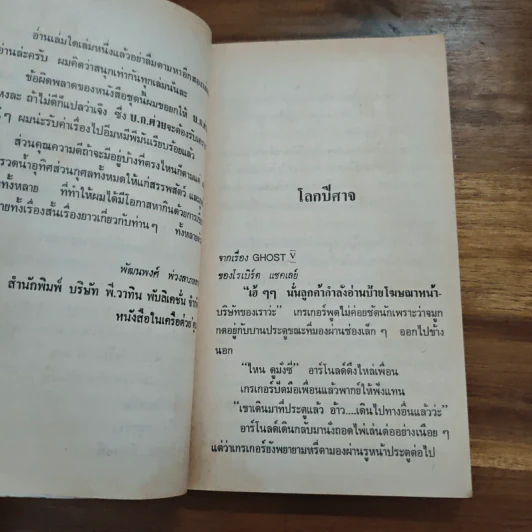 อ่านเล่มใดเล่มหนึ่งแล้วอย่าลืมตามหาอีกสองเล่ม
อ่านล่ะครับ ผมคิดว่าสนุกเท่ากันทุกเล่มนั่นละ
ข้อผิดพลาดของหนังสือชุดนี้ผมขอยกให้ บ.ก.
ถ้าไม่ดีก็แปลว่าเจ๊ง ซึ่ง บ.ก.ต่วยจะต้องรับ
ๆ ผมน่ะรับค่าเรื่องไปอิ่มหมีพีมันเรียบร้อยแล้ว
ส่วนคุณความดีถ้าจะมีอยู่บ้างที่ตรงไหนก็ตามแต่
รวดน้ำอุทิศส่วนกุศลทั้งหมดให้แก่สรรพสัตว์
ทั้งหลาย ที่ทำให้ผมได้มีโอกาสหากินด้วยการ
ทั้งเรื่องสั้นเรื่องยาวเกี่ยวกับท่านๆ ทั้งหลาย
พัฒนพงศ์ พ่วงลาภ
สำนักพิมพ์ บริษัท พี.วาทิน พับลิเคชั่น จำกัด
หนังสือในเครือต่วย
โลกปีศาจ
จากเรื่อง GHOST V
ของโรเบิร์ต แชคเลย์
“เฮ้ ๆๆ นั่นลูกค้ากำลังอ่านป้ายโฆษณาหน้า-
บริษัทของเราว่ะ” เกรเกอร์พูดไม่ค่อยชัดนักเพราะว่าจมูก
กดอยู่กับบานประตูขณะที่มองผ่านช่องเล็ก ๆ ออกไปข้าง
นอก
“ไหน ดูมั่งซี” อาร์โนลด์ดึงไหล่เพื่อน
เกรเกอร์ปัดมือเพื่อนแล้วพากย์ให้ฟังแทน
“เขาเดินมาที่ประตูแล้ว อ้าว....เดินไปทางอื่นแล้วว่ะ”
อาร์โนลด์เดินกลับมานั่งถอดไพ่เล่นต่ออย่างเนือย ๆ
แต่ว่าเกรเกอร์ยังพยายามหรี่ตามองผ่านรูหน้าประตูต่อไป